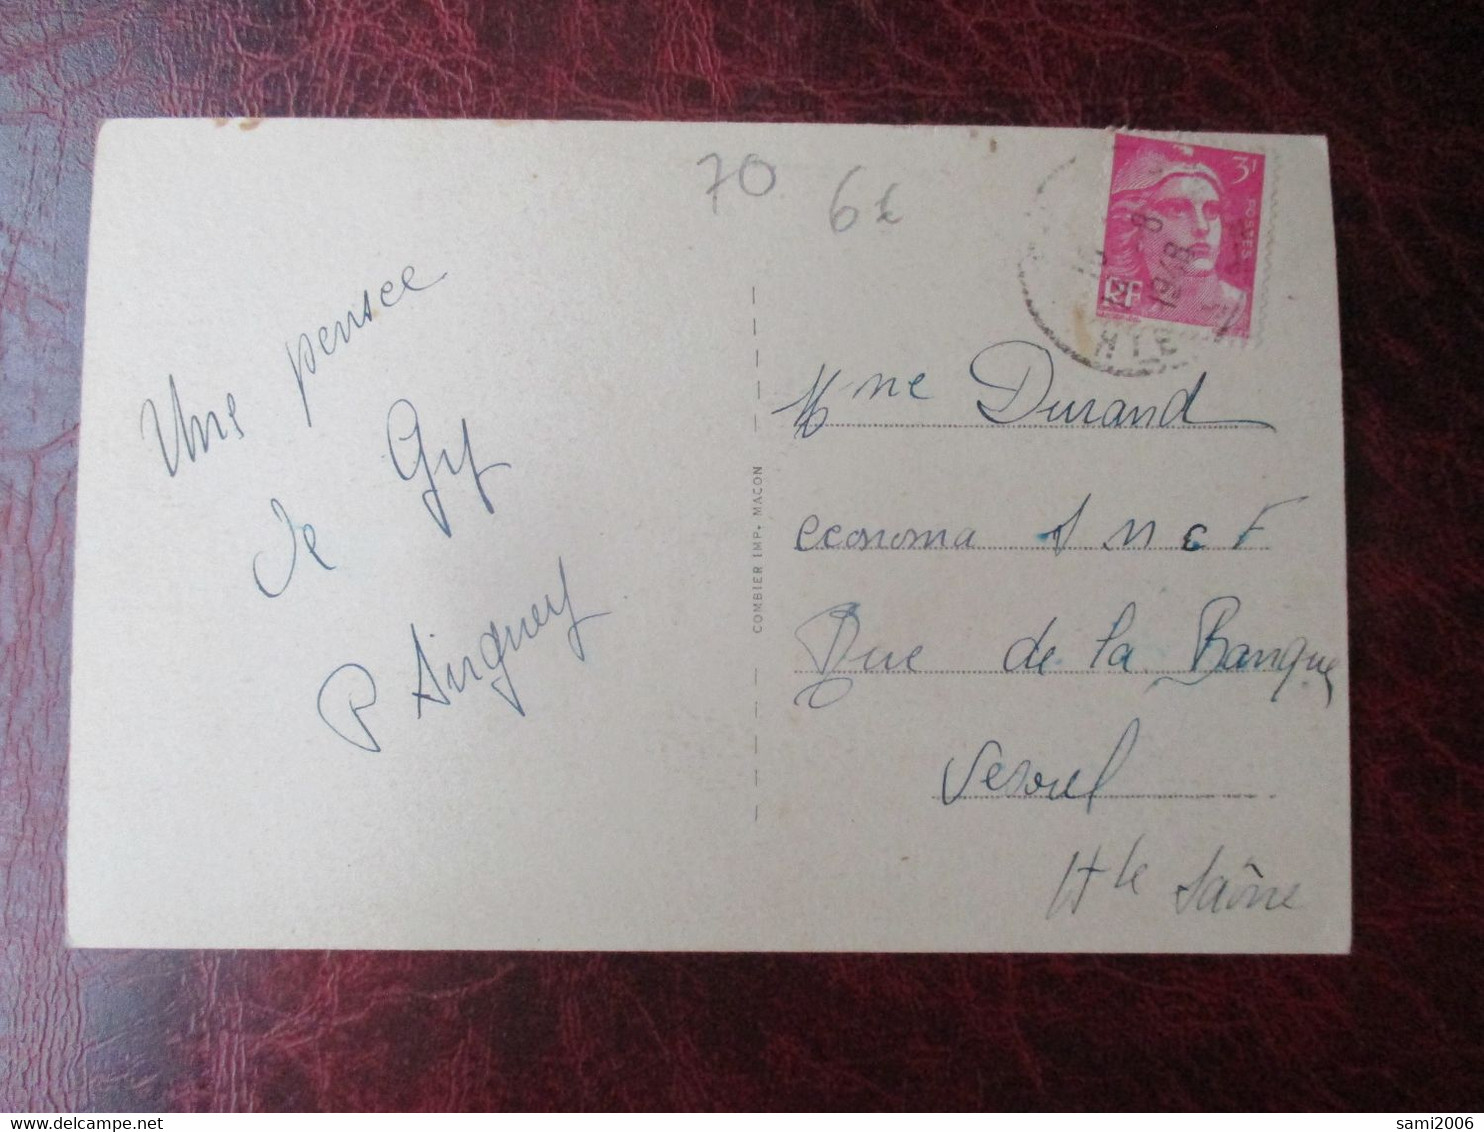 70 6€
Une pensée
de Gy
P
COMBIER IMP. MACON
3F
POSTES
RF
8
1948
HTE
Mme Durand
economa S N C F
Rue de la Banque
Vesoul
Hte Saône
sami2006